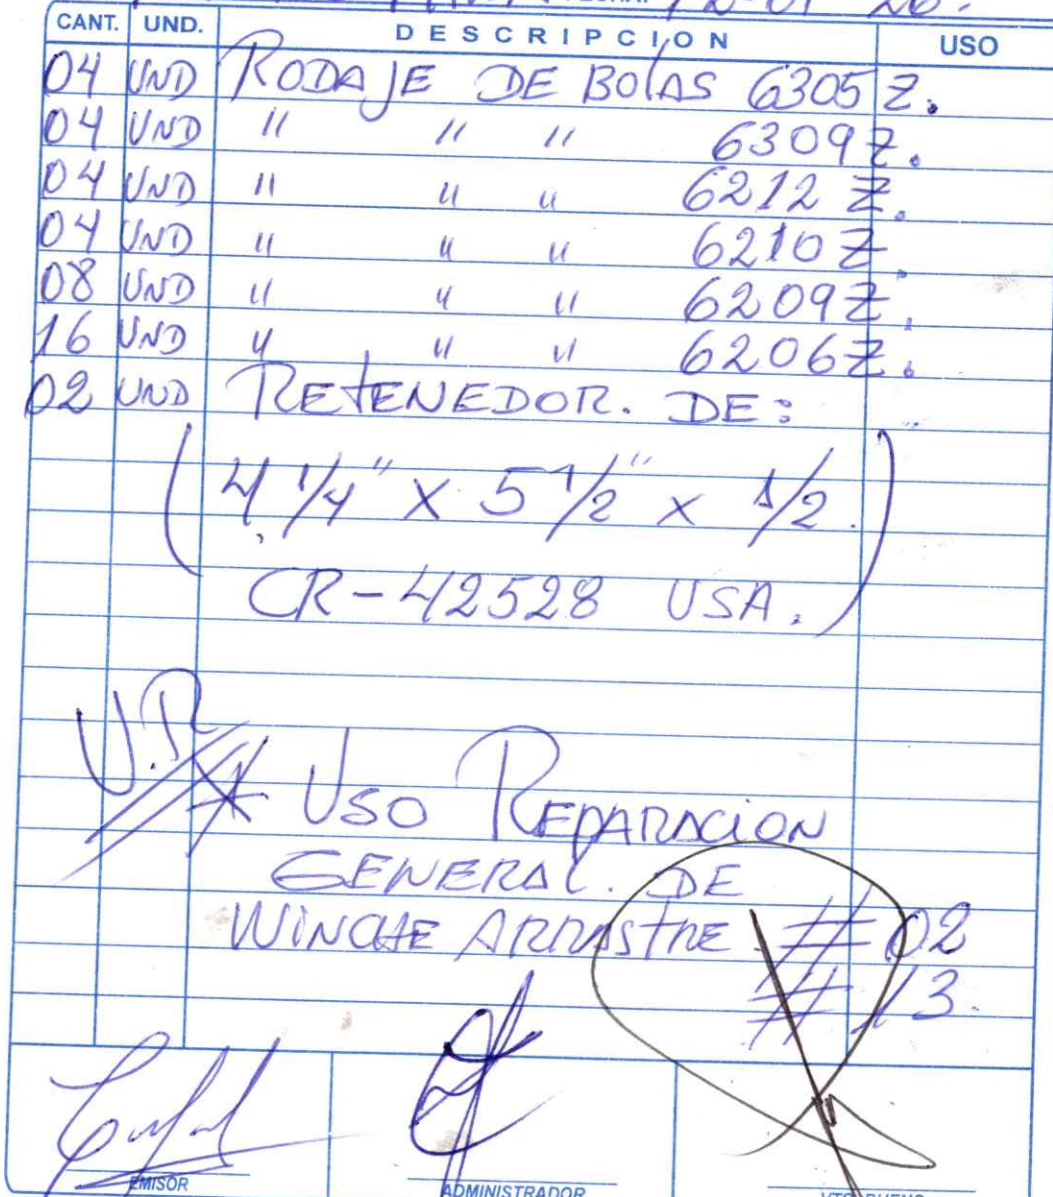 12-01-26.
CANT. UND. DESCRIPCION USO
04 UND RODAJE DE BOLAS 6305 Z.
04 UND " " " 6309 Z.
04 UND " " " 6212 Z.
04 UND " " " 6210 Z.
08 UND " " " 6209 Z.
16 UND " " " 6206 Z.
02 UND RETENEDOR. DE:
(4 1/4" X 5 1/2" X 1/2.
CR-42528 USA.)
* USO REPARACION
GENERAL. DE
WINCHE ARRASTRE. # 02
# 13.
EMISOR ADMINISTRADOR